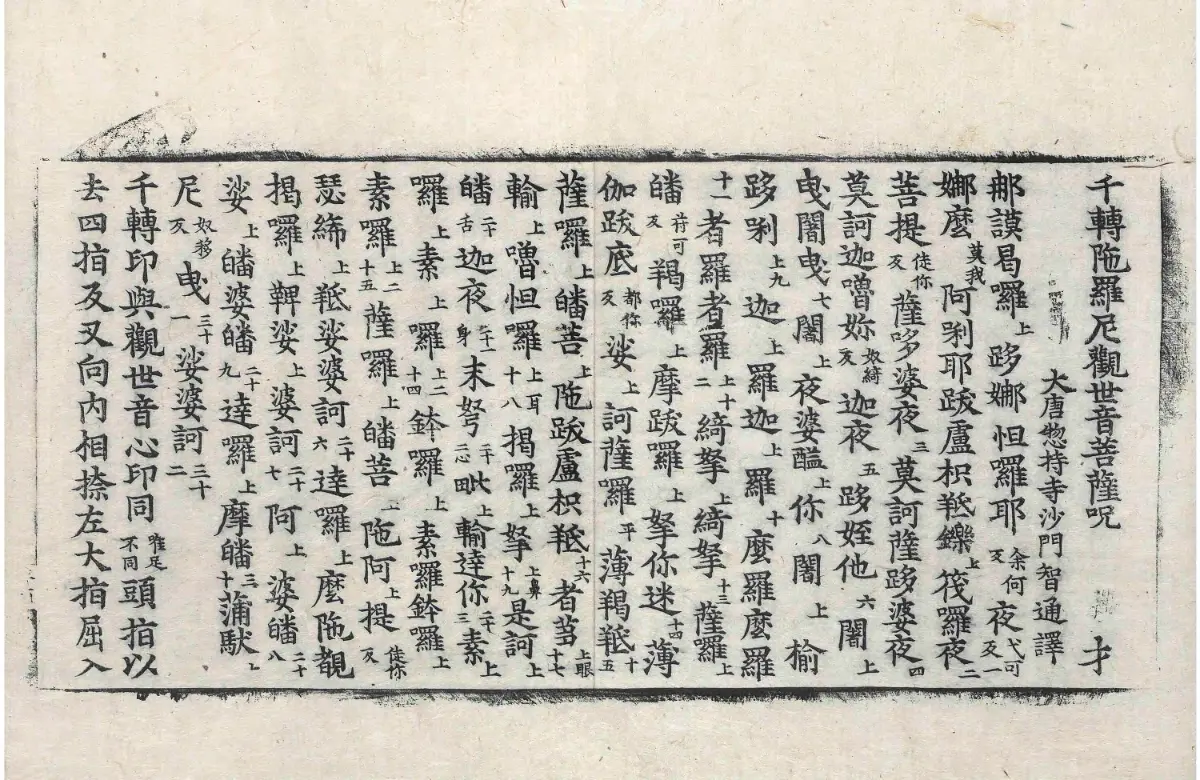 千轉陁羅尼觀世音菩薩呪 才
大唐惣持寺沙門智通譯
那謨曷囉上 跢娜怛囉耶余何反夜弋可反一
娜麼莫我 阿唎耶跋盧枳羝鑠上筏囉夜二
菩提徒你反薩哆婆夜三 莫訶薩跢婆夜四
莫訶迦嚕妳奴綺反迦夜五 跢姪他六 闇上
曳闇曳七 闇上夜婆醯上你八 闇上 榆
跢唎上九 迦上羅迦上羅十 麼羅麼羅
十一 者羅者羅上十二 綺拏上綺拏十三 薩囉上
皤苻可反羯囉上摩跋囉上拏你迷十四 薄
伽跋底都祢反 娑上訶薩囉平薄羯羝十五
薩囉上皤菩上陁跋盧枳羝十六 者蒭上眼十七
輸上嚕怛囉上耳十八 揭囉上拏上鼻十九 是訶上
皤二十舌迦夜二十一身 末弩二十二心 毗上輸達你二十三 素上
囉上素上囉十四 鉢囉上 素囉鉢囉上
素囉上二十五 薩囉上皤菩上陁阿上提徒你反
瑟絺上羝娑婆訶二十六 達囉上麼陁覩
揭囉上鞞娑上婆訶二十七 阿上婆皤二十八
娑上皤婆皤二十九 達囉上摩皤三十蒲馱上
尼奴移反曳三十一 娑婆訶三十二
千轉印與觀世音心印同唯足不同頭指以
去四指反叉向内相捺左大指屈入